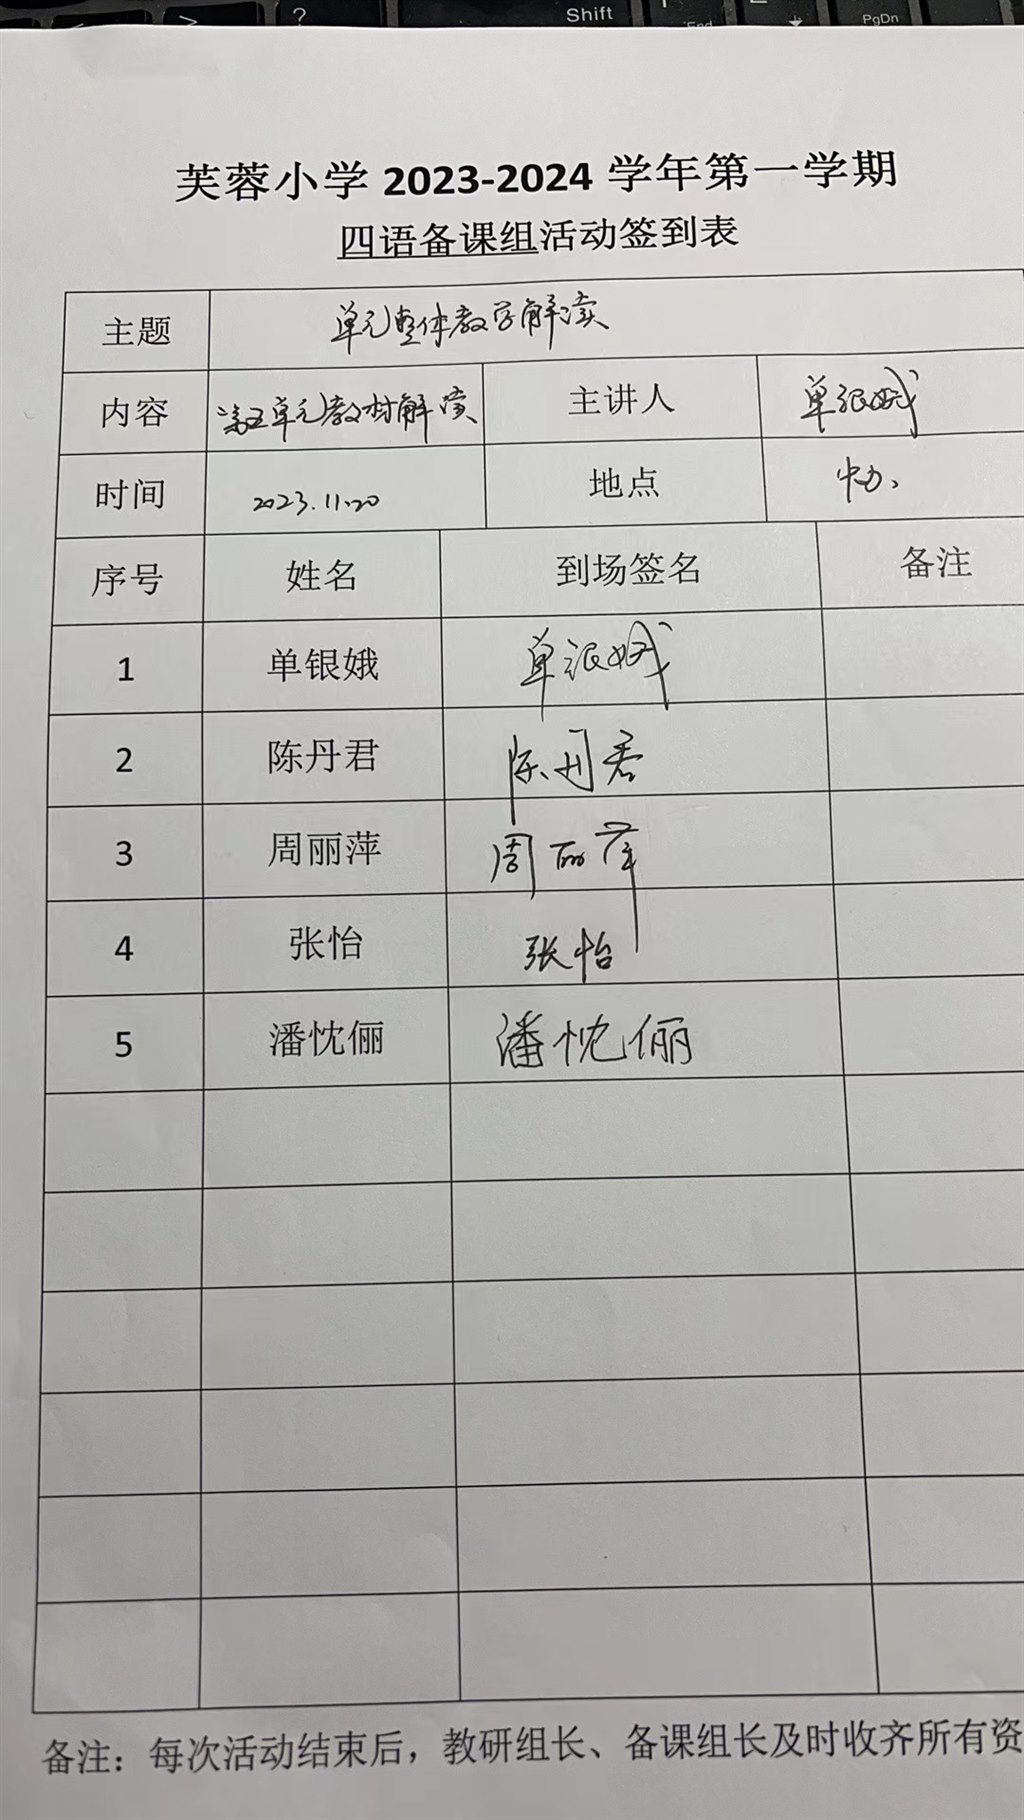 ?
Shift
End
PgDn
芙蓉小学 2023-2024 学年第一学期
四语备课组活动签到表
主题 单元整体教学解读
内容 第五单元教材解读 主讲人 单银娥
时间 2023.11.20 地点
序号 姓名 到场签名 备注
1 单银娥 单银娥
2 陈丹君 陈丹君
3 周丽萍 周丽萍
4 张怡 张怡
5 潘忱俪 潘忱俪
备注：每次活动结束后，教研组长、备课组长及时收齐所有资